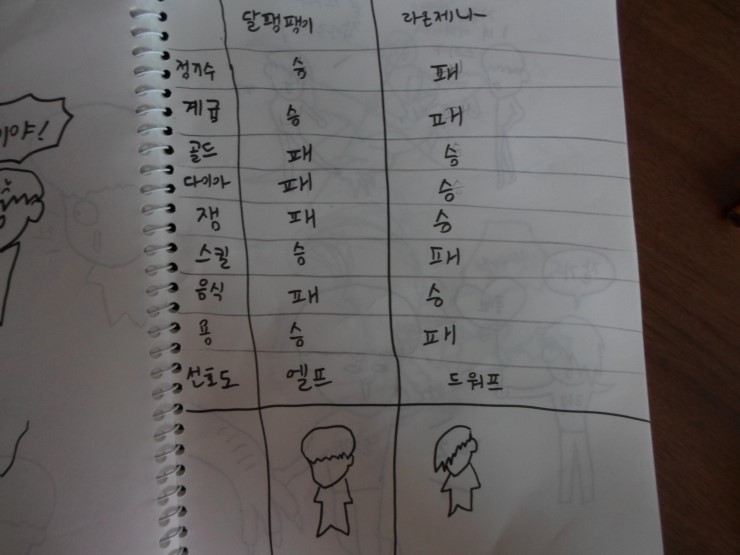 달팽팽이 라온제나
점지수 승 패
계급 승 패
골드 패 승
다이아 패 승
쟁 패 승
스킬 승 패
음식 패 승
용 승 패
선호도 엘프 드워프
이야!